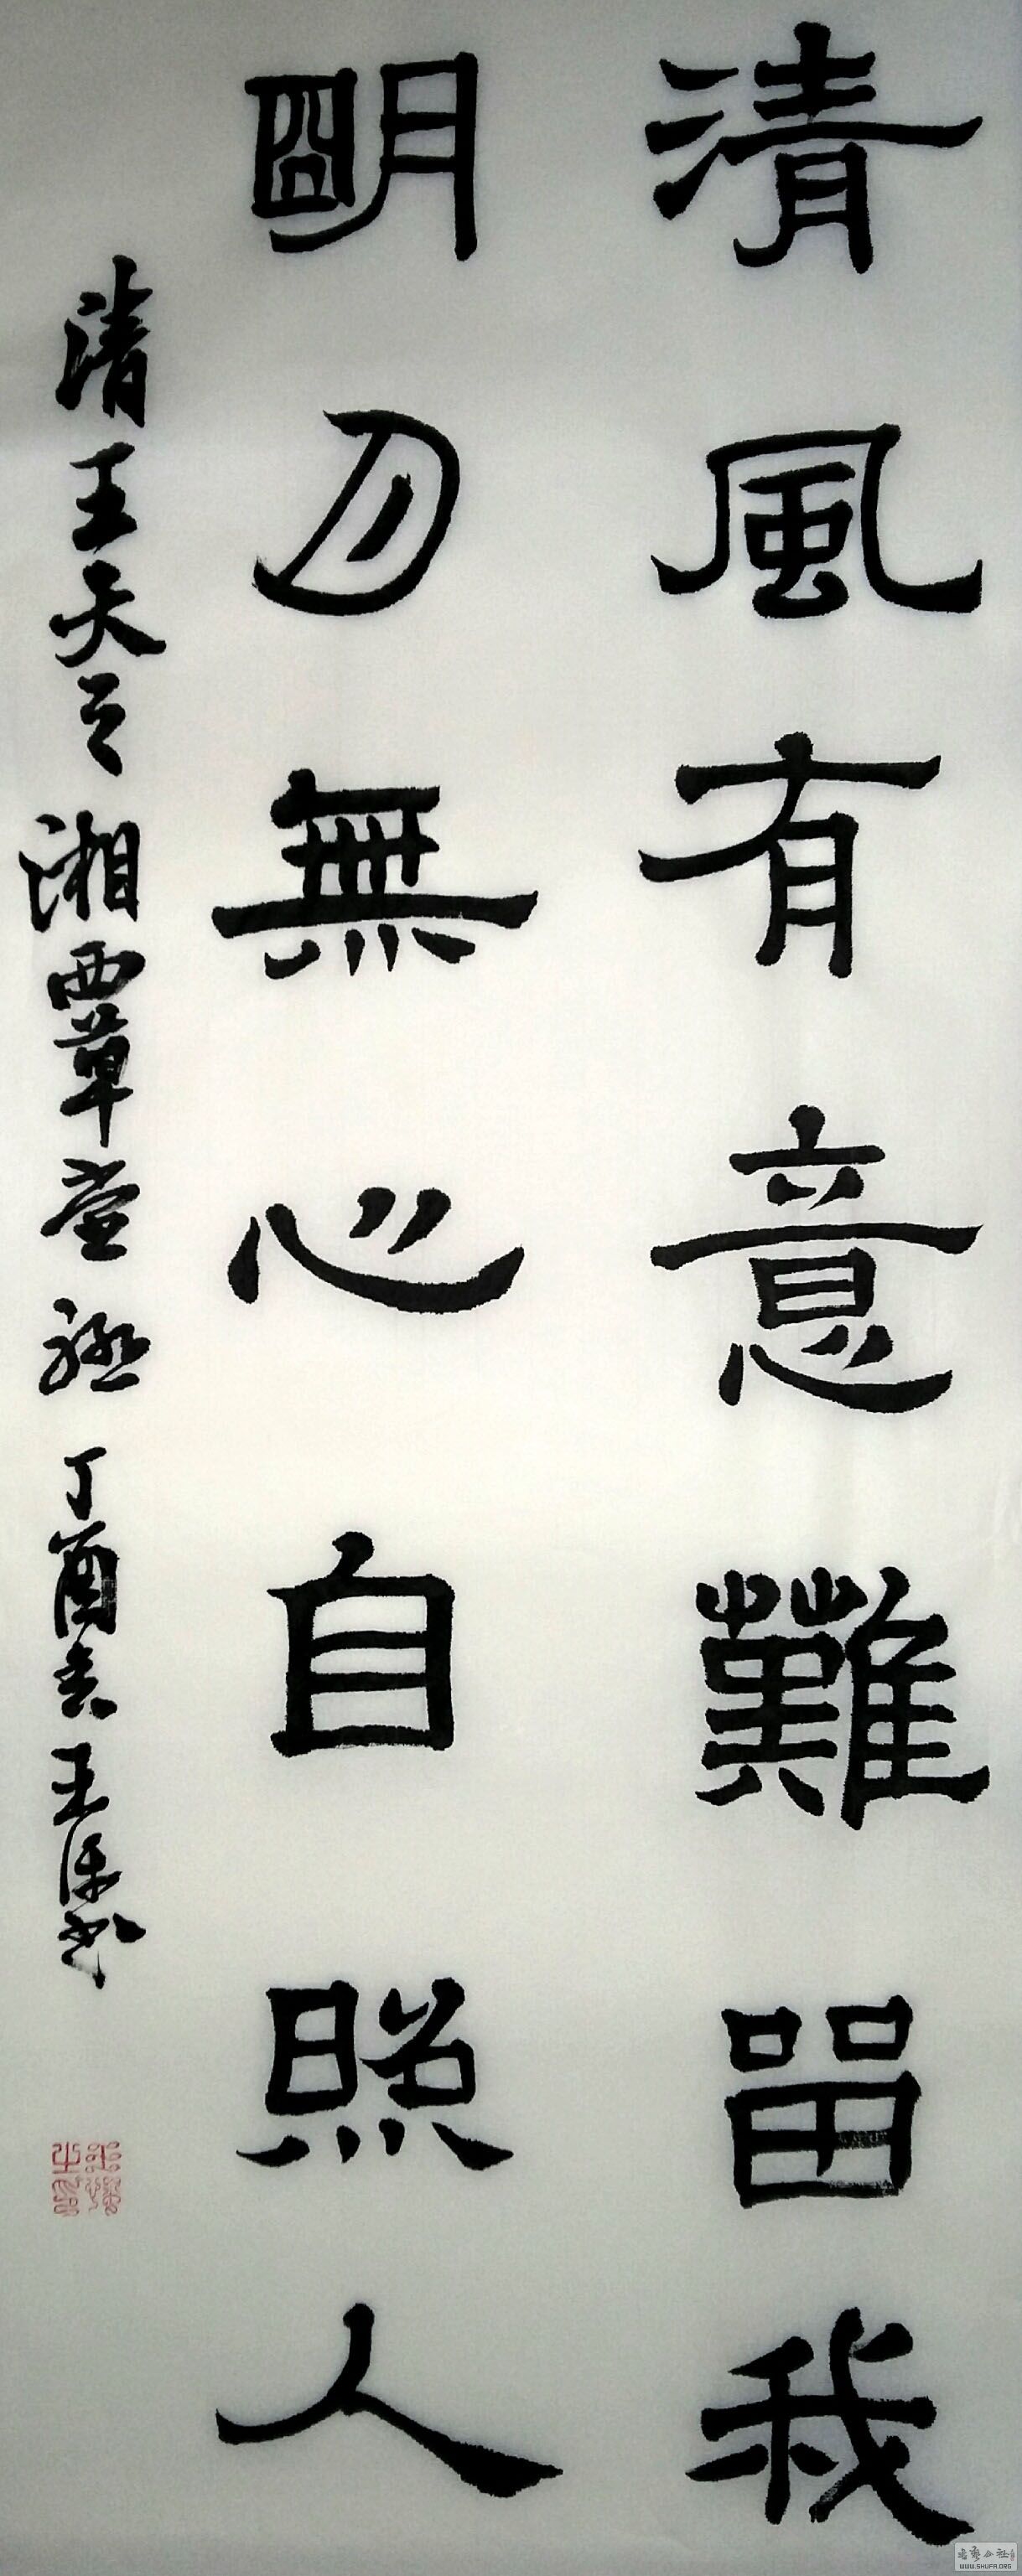 清風有意難留我
明月無心自照人
清王夫之湘西草堂聯 丁酉 王 书
WWW.SHUFA.ORG